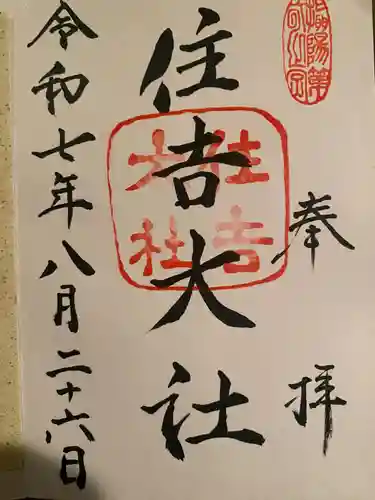 奉拝
住吉大社
令和七年八月二十六日
住吉
大社